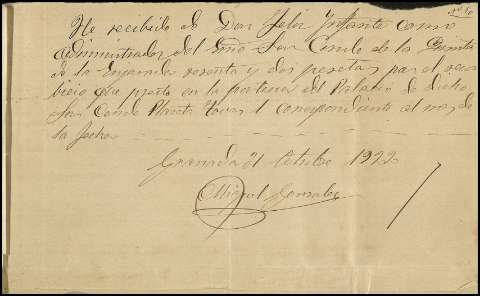 He recibido de Don Felix Infante como
Administrador del Exmo Sor Conde de la Quinta
de la Enjarada sesenta y dos pesetas por el ser
bicio que presto en la porteria del Palacio de dicho
Sor Conde Placeta Tovar 1 correspondiente al mes de
la fecha
Granada 31 Octubre 1922
Miguel Gonzalez